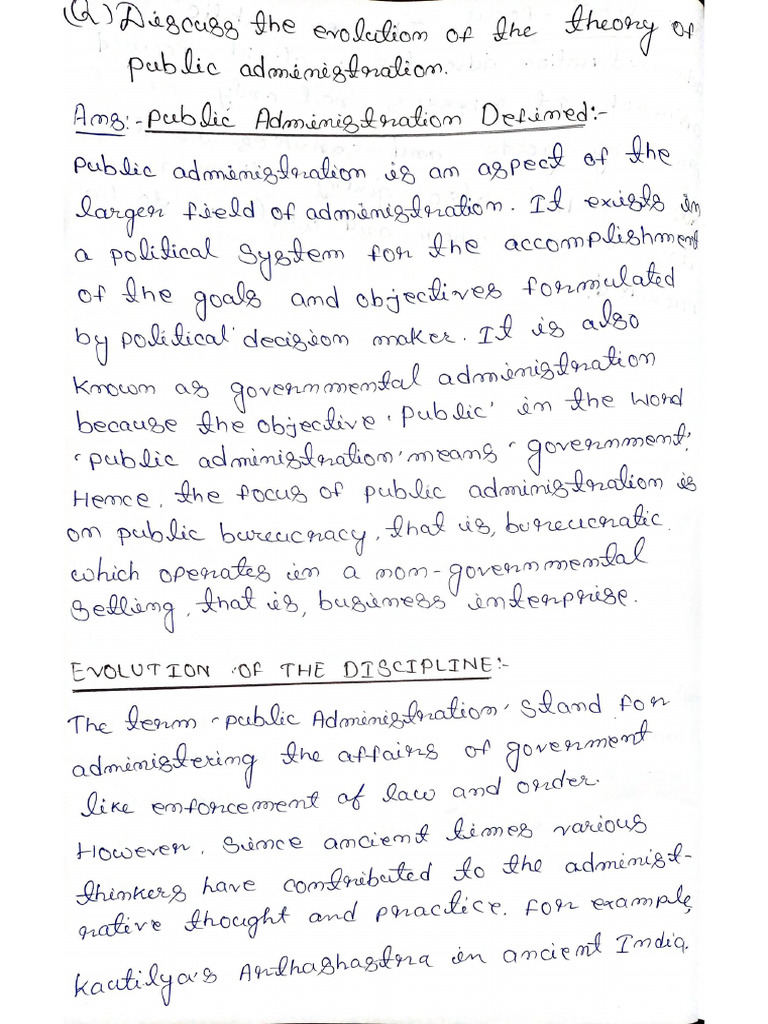 (Q) Discuss the evolution of the theory of
public administration.
Ans:- Public Administration Defined:-
Public administration is an aspect of the
larger field of administration. It exists in
a political system for the accomplishment
of the goals and objectives formulated
by political decision maker. It is also
known as governmental administration
because the objective 'Public' in the word
'public administration' means 'government'.
Hence, the focus of public administration is
on public bureucracy, that is, bureucratic
which operates in a non-governmental
setling, that is, business interprise.
EVOLUTION OF THE DISCIPLINE:-
The term 'public Administration' stand for
administering the affairs of government
like enforcement of law and order.
However, since ancient times various
thinkers have contributed to the administ-
rative thought and practice. for example,
Kautilya's Arthashastra in ancient India.